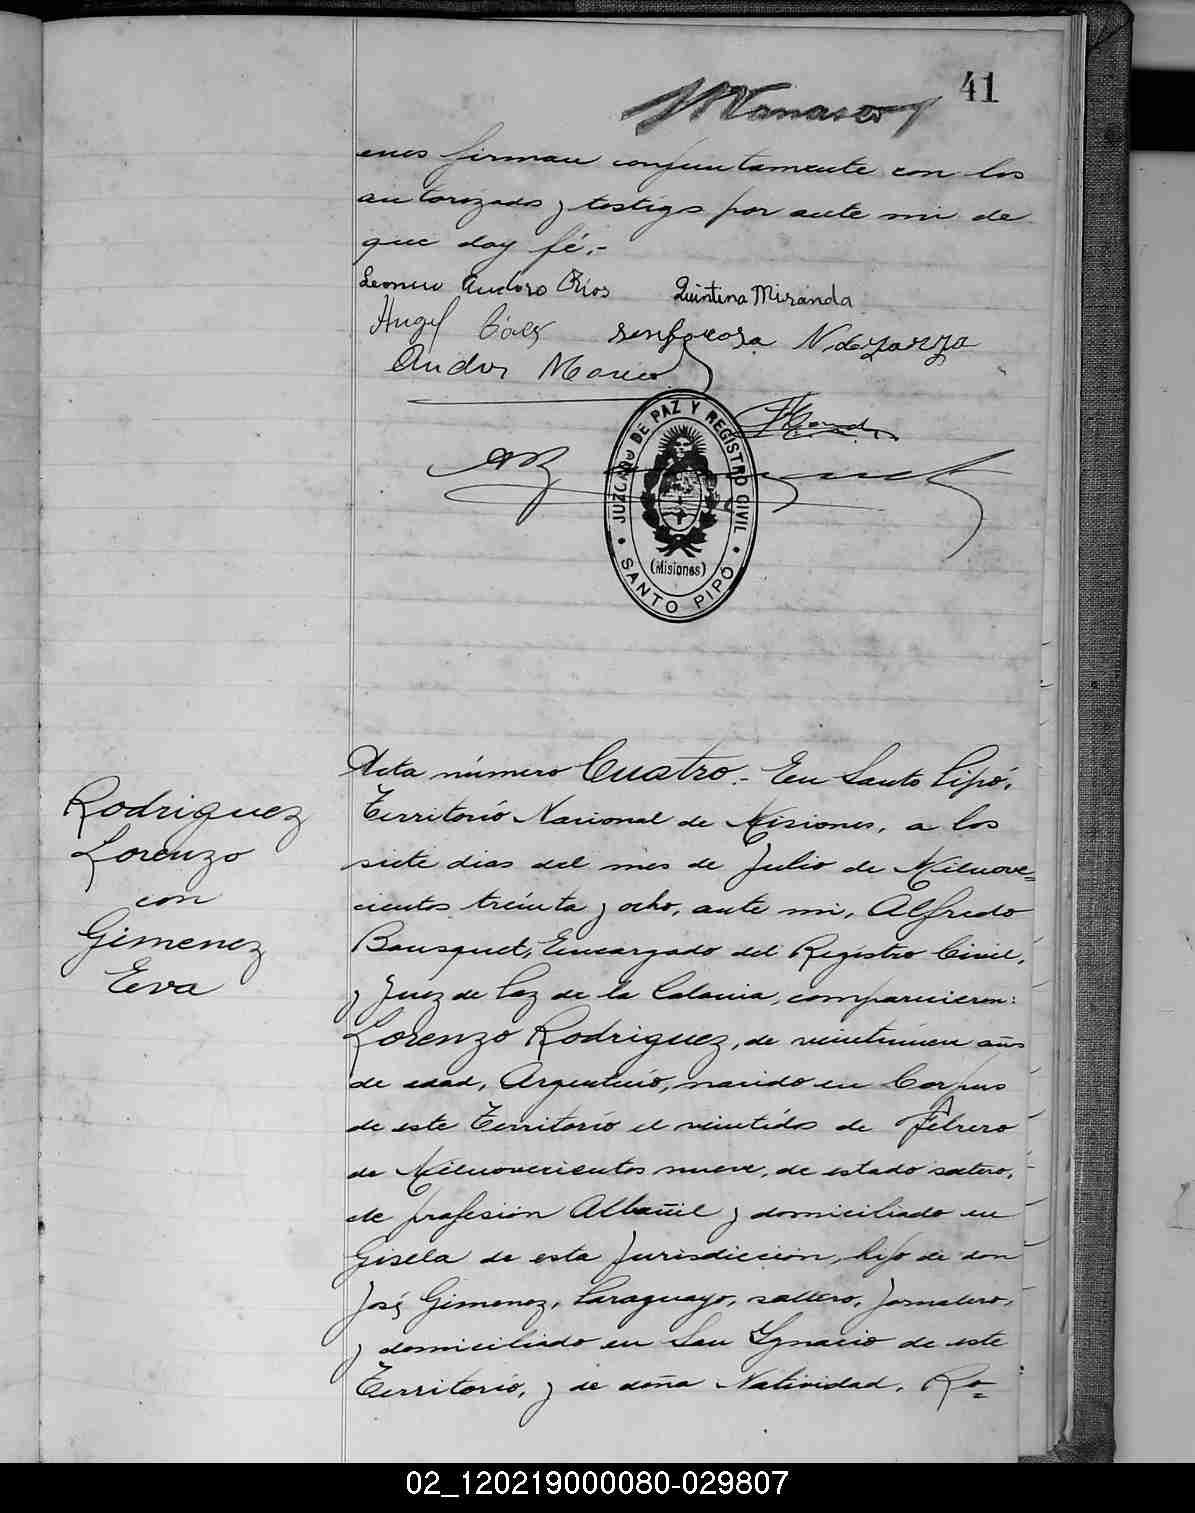 41
enes firman conjuntamente con los
autorizados y testigs por ante mi de
que doy fé.-
Quintina Miranda
Angel
N. de zarza
JUZGADO DE PAZ Y REGISTRO CIVIL
(Misiones)
SANTO PIPÓ
Acta número Cuatro.- En Santo Pipó,
Territorio Nacional de Misiones, a los
siete dias del mes de Julio de Milnove=
cientos treinta y ocho, ante mi, Alfredo
Bousquet, Encargado del Registro Civil,
y Juez de Paz de la Colonia, comparecieron:
Lorenzo Rodriguez, de veintinueve años
de edad, Argentino, nacido en Corpus
de este Territorio el veintidos de Febrero
de Milnovecientos nueve, de estado soltero,
de profesión Albañil y domiciliado en
Gisela de esta Jurisdicción, hijo de don
José Gimenez, Paraguayo, soltero, Jornalero,
y domiciliado en San Ygnacio de este
Territorio, y de doña Natividad, Ro=
Rodriguez
Lorenzo
con
Gimenez
Eva
02_120219000080-029807